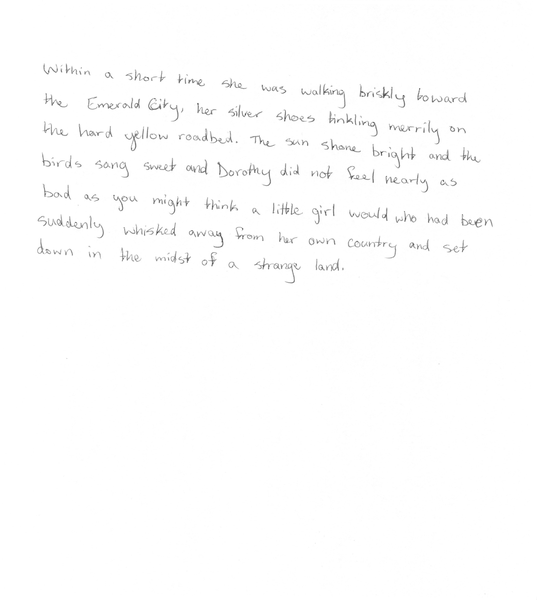 Within a short time she was walking briskly toward
the Emerald City, her silver shoes tinkling merrily on
the hard yellow roadbed. The sun shone bright and the
birds sang sweet and Dorothy did not feel nearly as
bad as you might think a little girl would who had been
suddenly whisked away from her own country and set
down in the midst of a strange land.